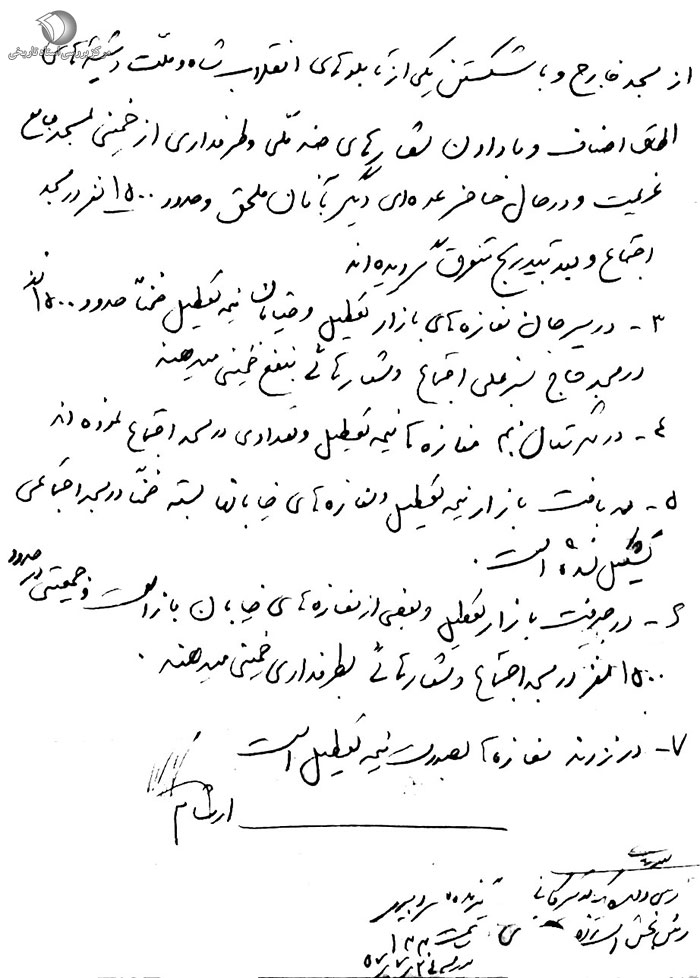 مرکز بررسی اسناد تاریخی
از مسجد خارج و با شکستن یکی از تابلوهای انقلاب شاه و ملت و شیشه‌های
اطاق اصناف و با دادن شعارهای ضد ملی و طرفداری از خمینی بمسجد جامع
عزیمت و در حال حاضر عده‌ای دیگر بآنان ملحق و حدود ۱۵۰۰ نفر در مسجد
اجتماع و بعد بتدریج متفرق گردیده‌اند
۳- در سیرجان مغازه‌های بازار تعطیل و خیابان نیمه تعطیل ضمناً حدود ۱۵۰۰ نفر
در مسجد حاج اجتماع و شعارهائی بنفع خمینی میدهند
۴- در بم مغازه‌ها نیمه تعطیل و تعدادی در مسجد اجتماع نموده‌اند
۵- در بافت بازار نیمه تعطیل و مغازه‌های خیابانها بسته ضمناً در مسجد اجتماعی
تشکیل نشده است.
۶- در جیرفت بازار تعطیل و بعضی از مغازه‌های خیابان باز است و جمعیتی در حدود
۱۵۰۰ نفر در مسجد اجتماع و شعارهائی بطرفداری خمینی میدهند.
۷- در زرند مغازه‌ها بصورت نیمه تعطیل است
ارتشام
گیرنده
ساعت